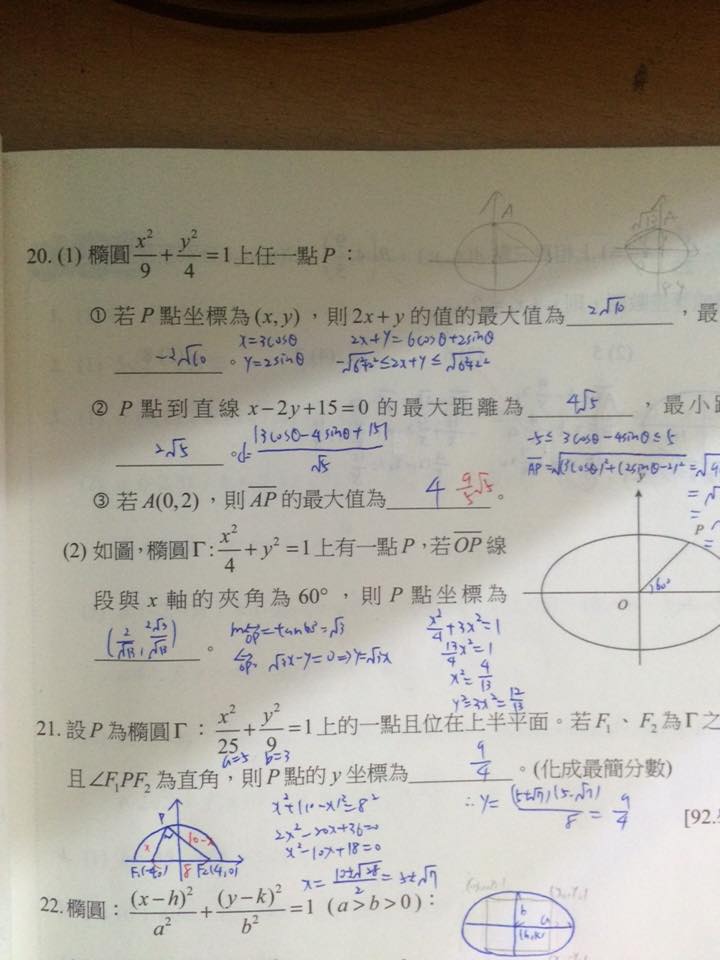 20. (1) 橢圓 x²/9 + y²/4 = 1 上任一點 P：
A
① 若 P 點坐標為 (x, y)，則 2x + y 的值的最大值為 2√10，最
-2√10。 x=3cosθ 2x+y=6cosθ+2sinθ
y=2sinθ -√6²+2² ≤ 2x+y ≤ √6²+2²
② P 點到直線 x − 2y + 15 = 0 的最大距離為 4√5，最小距
2√5。 d= |3cosθ-4sinθ+15| / √5 -5≤ 3cosθ-4sinθ ≤5
AP=√(3cosθ)²+(2sinθ-2)² =
③ 若 A(0, 2)，則 AP 的最大值為 4 9/5√5。
(2) 如圖，橢圓 Γ: x²/4 + y² = 1 上有一點 P，若 OP 線
段與 x 軸的夾角為 60°，則 P 點坐標為
(2/√13, 2√3/√13)。
m OP = tan60° = √3
OP: √3x-y=0 ⇒ y=√3x
x²/4+3x²=1
13/4 x²=1
x²=4/13
y²=3x²=12/13
y
P
O 60°
21. 設 P 為橢圓 Γ： x²/25 + y²/9 = 1 上的一點且位在上半平面。若 F₁、F₂ 為 Γ 之
a=5 b=3
且 ∠F₁PF₂ 為直角，則 P 點的 y 坐標為 9/4。(化成最簡分數)
x²+(10-x)²=8²
2x²-20x+36=0
x²-10x+18=0
x= 10±√28 / 2 = 5±√7
∴ y= (5+√7)(5-√7) / 8 = 9/4
[92.
P
x 10-x
F₁(-4,0) 8 F₂(4,0)
22. 橢圓： (x−h)²/a² + (y−k)²/b² = 1 (a > b > 0)：
b
a
(h,k)